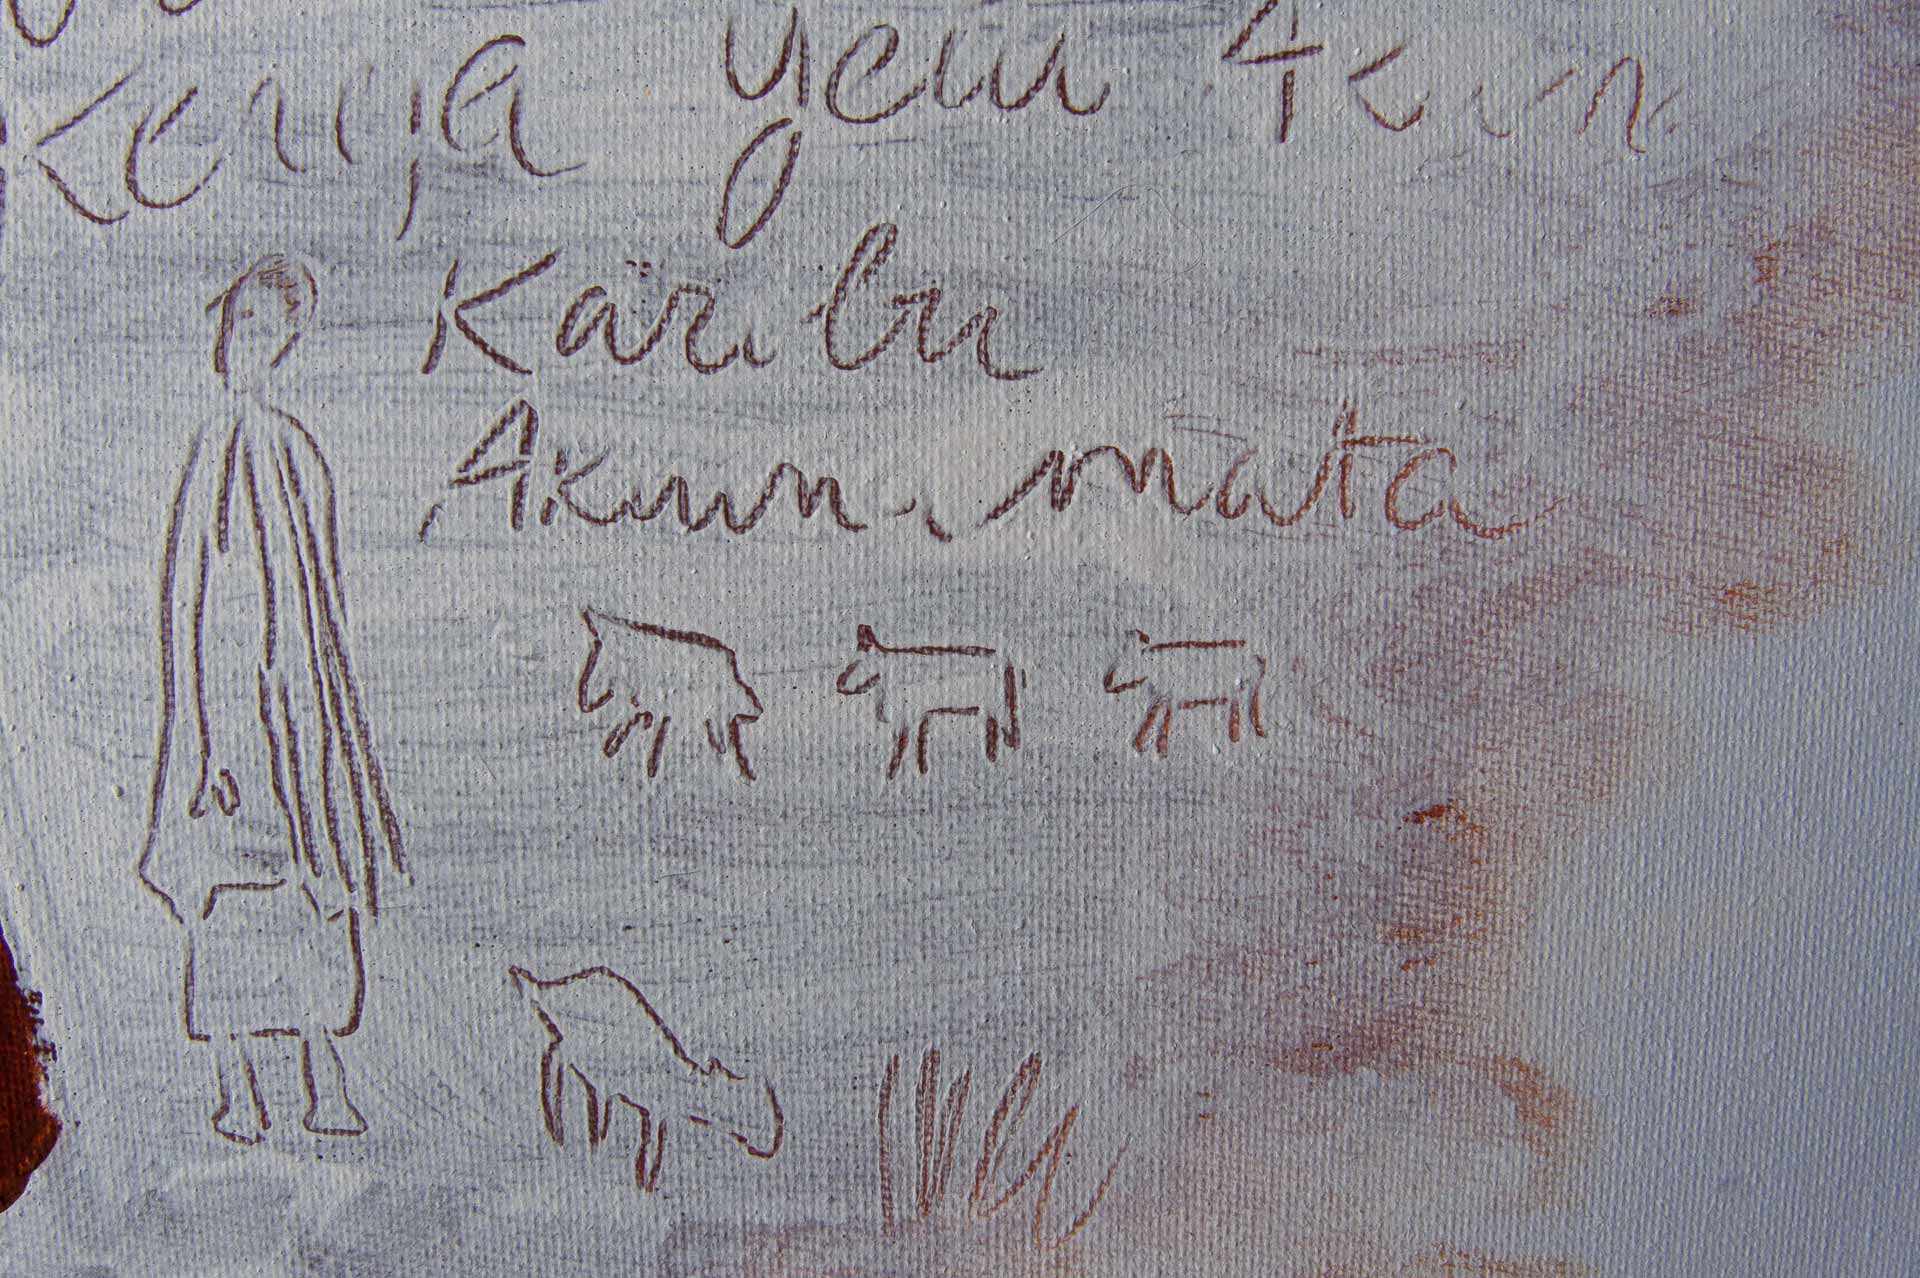 Kenya yetu Akun
Karibu
Akuna mata